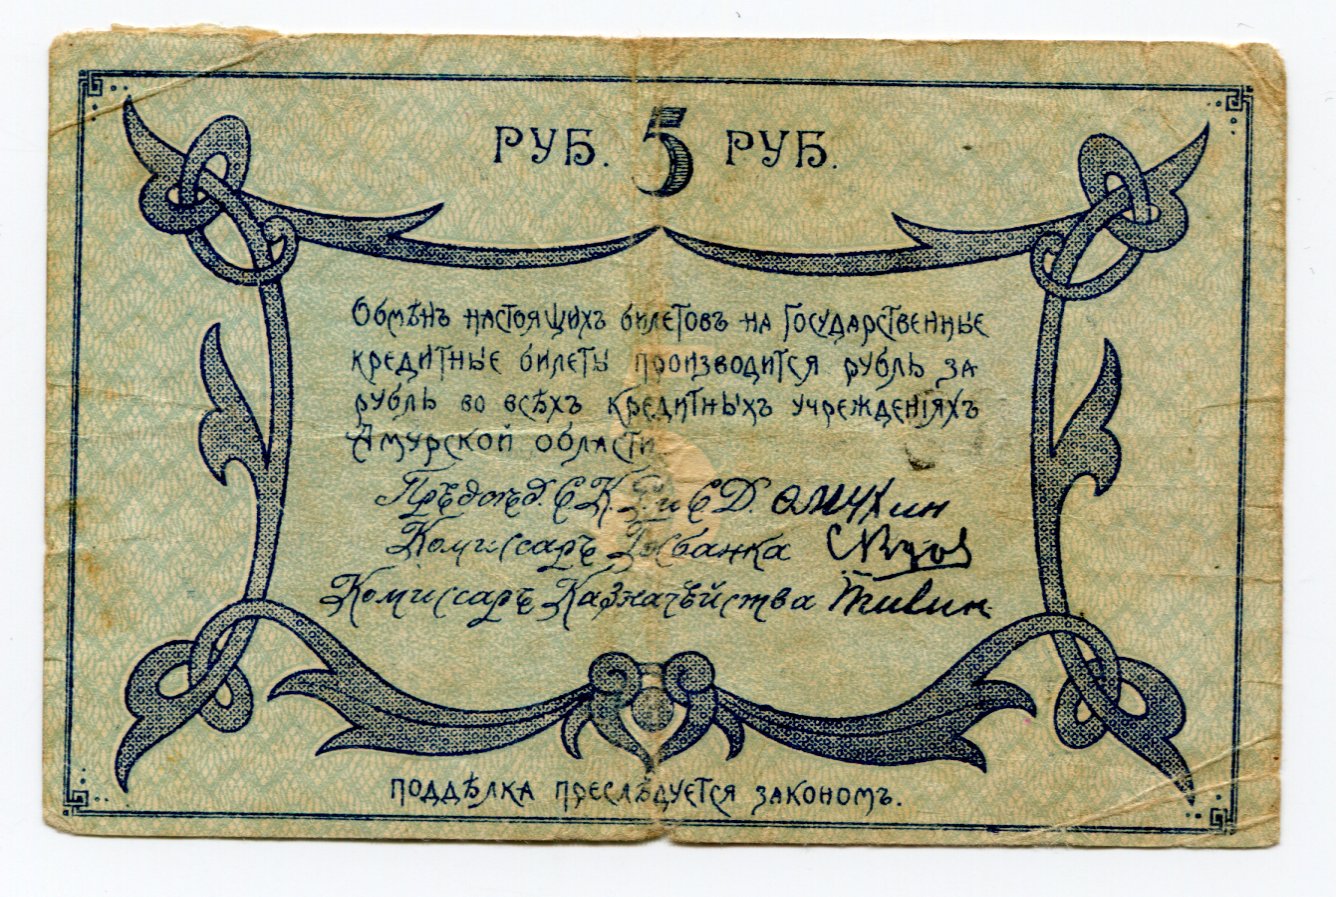 РУБ. 5 РУБ.
Обмѣнъ настоящихъ билетовъ на Государственные
кредитные билеты производится рубль за
рубль во всѣхъ кредитныхъ учрежденіяхъ
Амурской области
Прѣдсѣд. С.К.Г. и С.Д. ѲМухин
Комиссаръ Госбанка
Комиссаръ Казначѣйства
поддѣлка преслѣдуется закономъ.